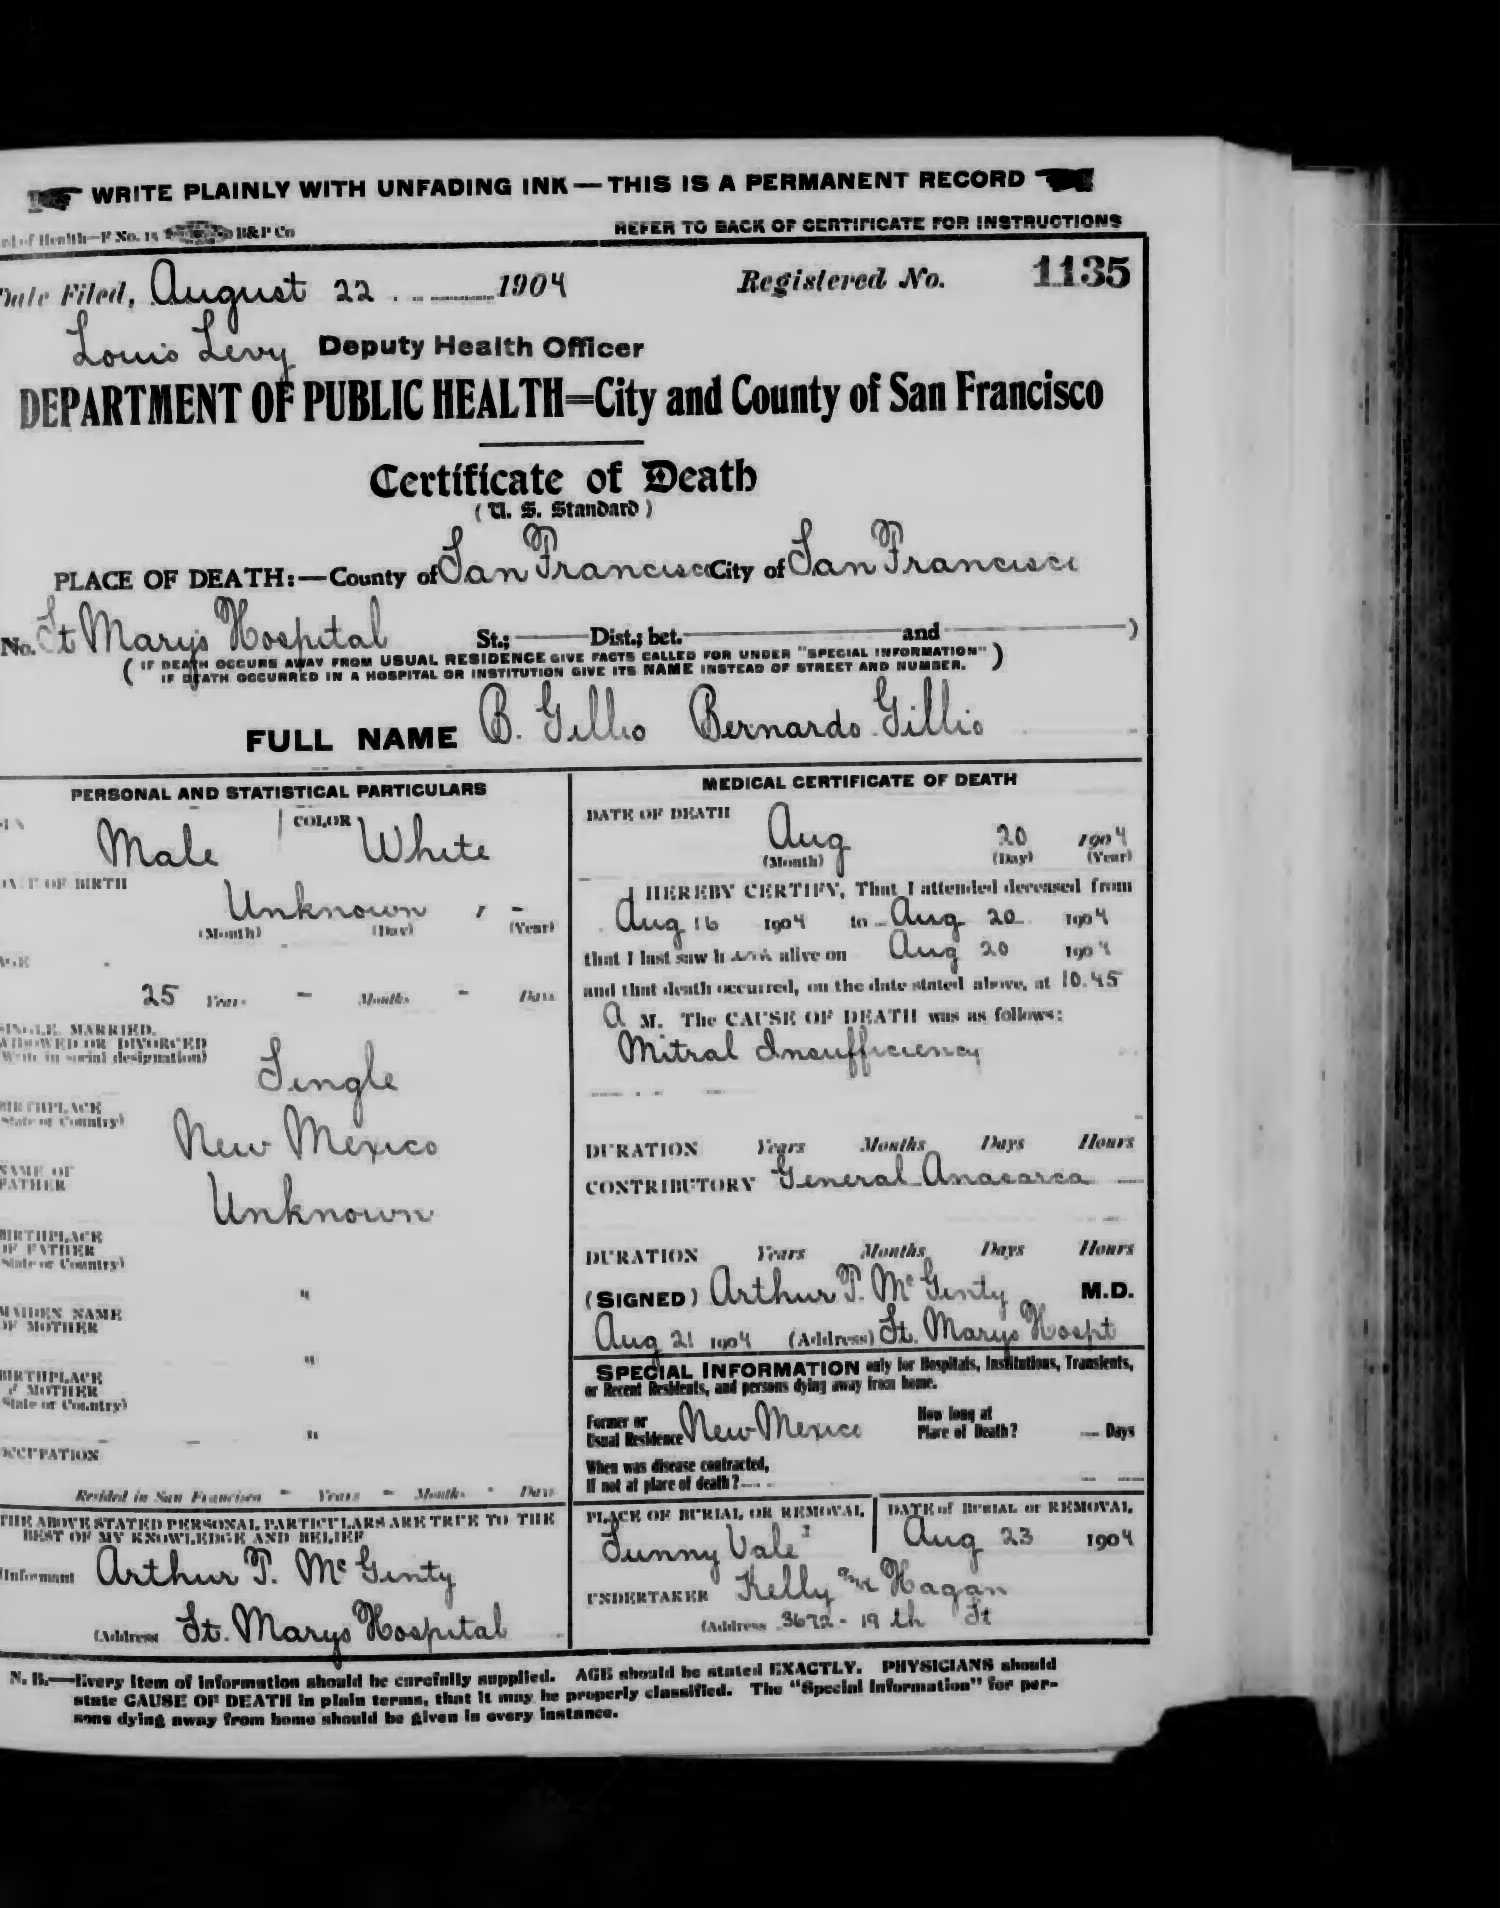 WRITE PLAINLY WITH UNFADING INK — THIS IS A PERMANENT RECORD
of Health—F No. 15 B&P Co REFER TO BACK OF CERTIFICATE FOR INSTRUCTIONS
Date Filed, August 22 1904 Registered No. 1135
Louis Levy Deputy Health Officer
DEPARTMENT OF PUBLIC HEALTH=City and County of San Francisco
Certificate of Death
( U. S. Standard )
PLACE OF DEATH:—County of San Francisco City of San Francisco
No. St Marys Hospital St.; Dist.; bet. and )
( IF DEATH OCCURS AWAY FROM USUAL RESIDENCE GIVE FACTS CALLED FOR UNDER "SPECIAL INFORMATION" )
IF DEATH OCCURRED IN A HOSPITAL OR INSTITUTION GIVE ITS NAME INSTEAD OF STREET AND NUMBER.
FULL NAME B. Gillio Bernardo Gillio
PERSONAL AND STATISTICAL PARTICULARS
SEX Male COLOR White
DATE OF BIRTH
Unknown
(Month) (Day) (Year)
AGE
25 Years - Months - Days
SINGLE, MARRIED,
WIDOWED OR DIVORCED
(Write in social designation)
Single
BIRTHPLACE
(State or Country)
New Mexico
NAME OF
FATHER
Unknown
BIRTHPLACE
OF FATHER
(State or Country)
"
MAIDEN NAME
OF MOTHER
"
BIRTHPLACE
OF MOTHER
(State or Country)
"
OCCUPATION
Resided in San Francisco - Years - Months - Days
THE ABOVE STATED PERSONAL PARTICULARS ARE TRUE TO THE
BEST OF MY KNOWLEDGE AND BELIEF
(Informant Arthur T. McGinty
(Address St. Marys Hospital
MEDICAL CERTIFICATE OF DEATH
DATE OF DEATH
Aug 20 1904
(Month) (Day) (Year)
I HEREBY CERTIFY, That I attended deceased from
Aug 16 1904 to Aug 20 1904
that I last saw h alive on Aug 20 1904
and that death occurred, on the date stated above, at 10.45
A M. The CAUSE OF DEATH was as follows:
Mitral Insufficiency
DURATION Years Months Days Hours
CONTRIBUTORY General Anasarca
DURATION Years Months Days Hours
(SIGNED) Arthur T. McGinty M.D.
Aug 21 1904 (Address) St. Marys Hospt
SPECIAL INFORMATION only for Hospitals, Institutions, Transients,
or Recent Residents, and persons dying away from home.
Former or
Usual Residence New Mexico
How long at
Place of Death? — Days
When was disease contracted,
If not at place of death?
PLACE OF BURIAL OR REMOVAL
Sunny Vale
DATE of BURIAL or REMOVAL
Aug 23 1904
UNDERTAKER Kelly and Hagan
(Address 3672 - 19 th St
N. B.—Every item of information should be carefully supplied. AGE should be stated EXACTLY. PHYSICIANS should
state CAUSE OF DEATH in plain terms, that it may be properly classified. The "Special Information" for per-
sons dying away from home should be given in every instance.